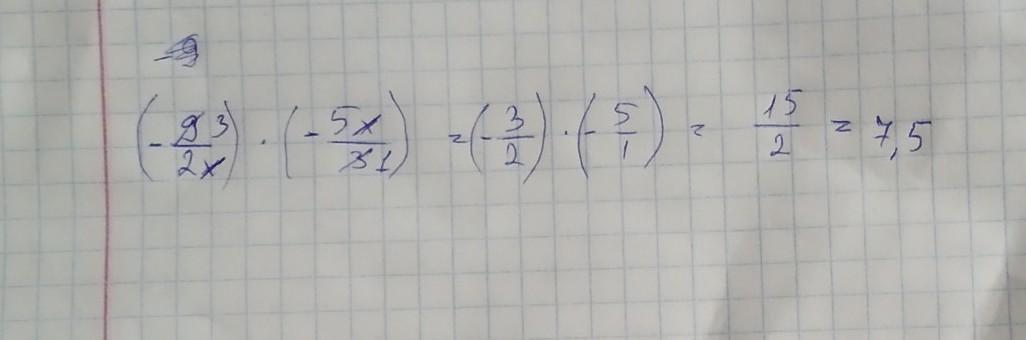 (-9 3/2x) · (-5x/3 1) = (-3/2) · (-5/1) = 15/2 = 7,5